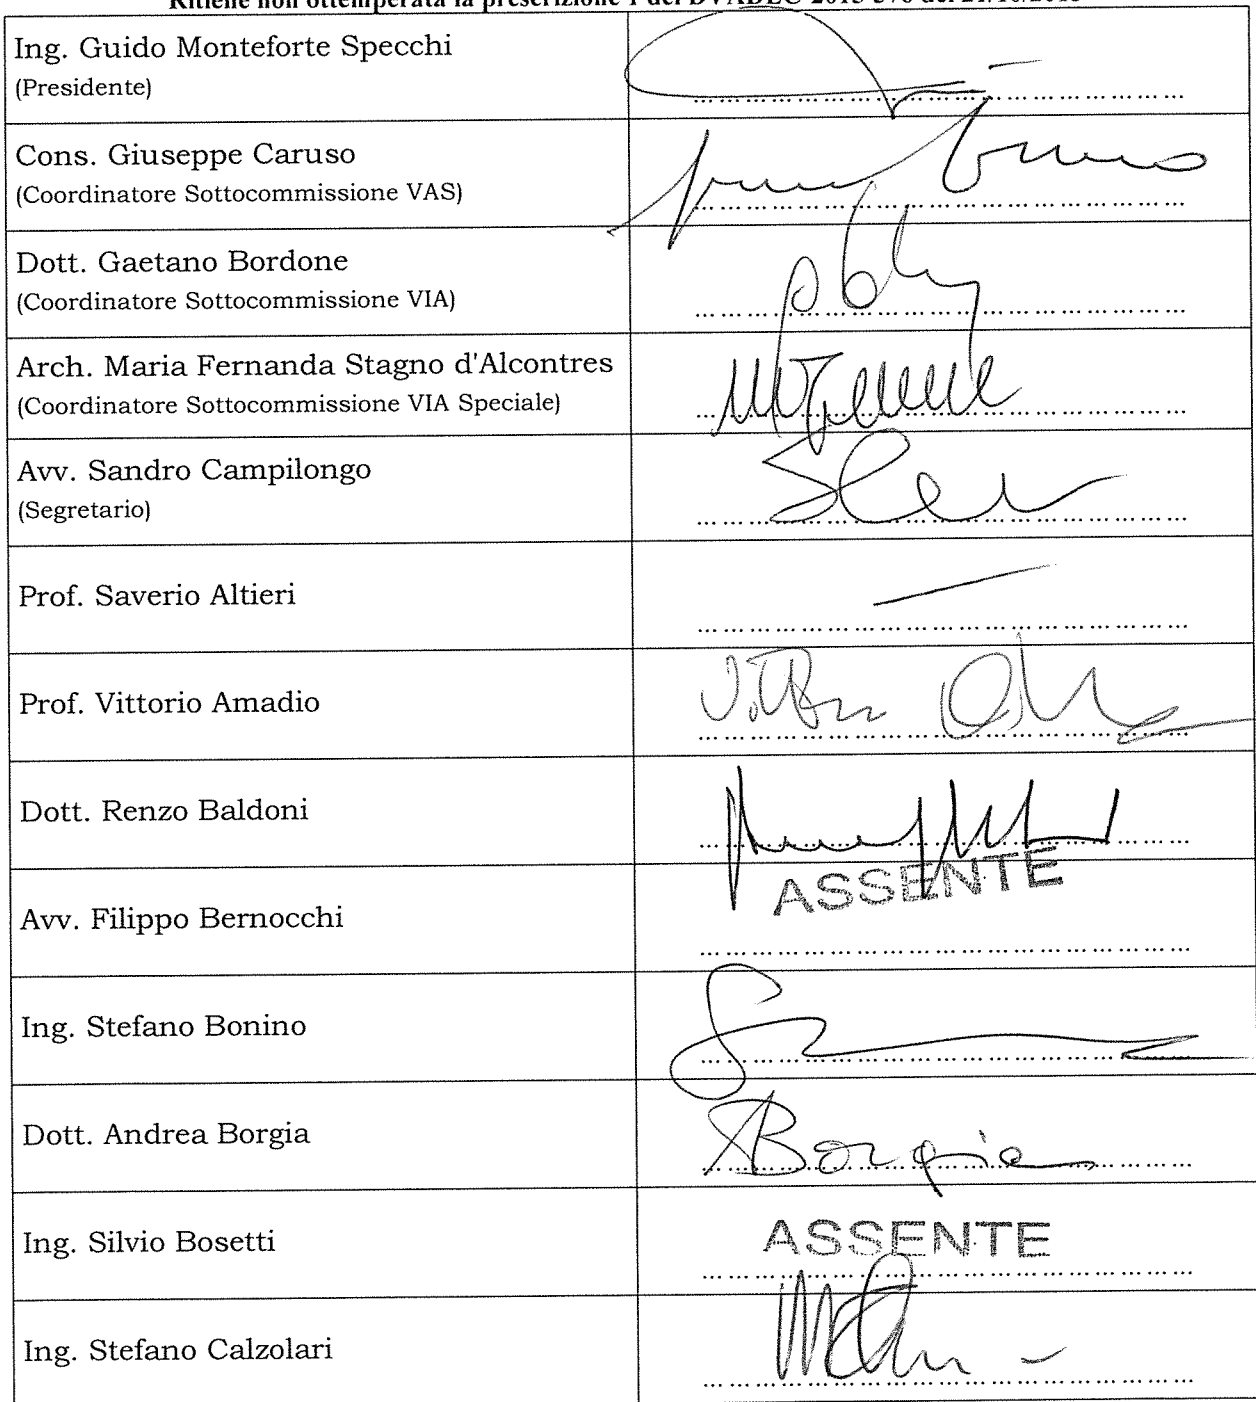 Ritiene non ottemperata la prescrizione 1 del DVADEC-2015-376 del 21/10/2015
Ing. Guido Monteforte Specchi
(Presidente)
Cons. Giuseppe Caruso
(Coordinatore Sottocommissione VAS)
Dott. Gaetano Bordone
(Coordinatore Sottocommissione VIA)
Arch. Maria Fernanda Stagno d'Alcontres
(Coordinatore Sottocommissione VIA Speciale)
Avv. Sandro Campilongo
(Segretario)
Prof. Saverio Altieri
Prof. Vittorio Amadio
Dott. Renzo Baldoni
ASSENTE
Avv. Filippo Bernocchi
Ing. Stefano Bonino
Dott. Andrea Borgia
Borgia
Ing. Silvio Bosetti
ASSENTE
Ing. Stefano Calzolari